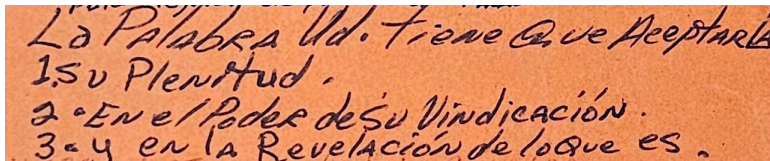 La Palabra Ud. Tiene Que Aceptarla
1. Su Plenitud.
2. En el Poder de Su Vindicación.
3. Y en la Revelación de lo que es.